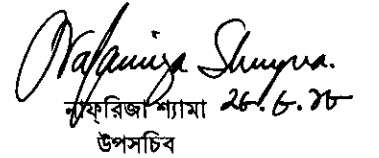 Nafariza Shyama.
নাফরিজা শ্যামা ২৮.৬.১৮
উপসচিব